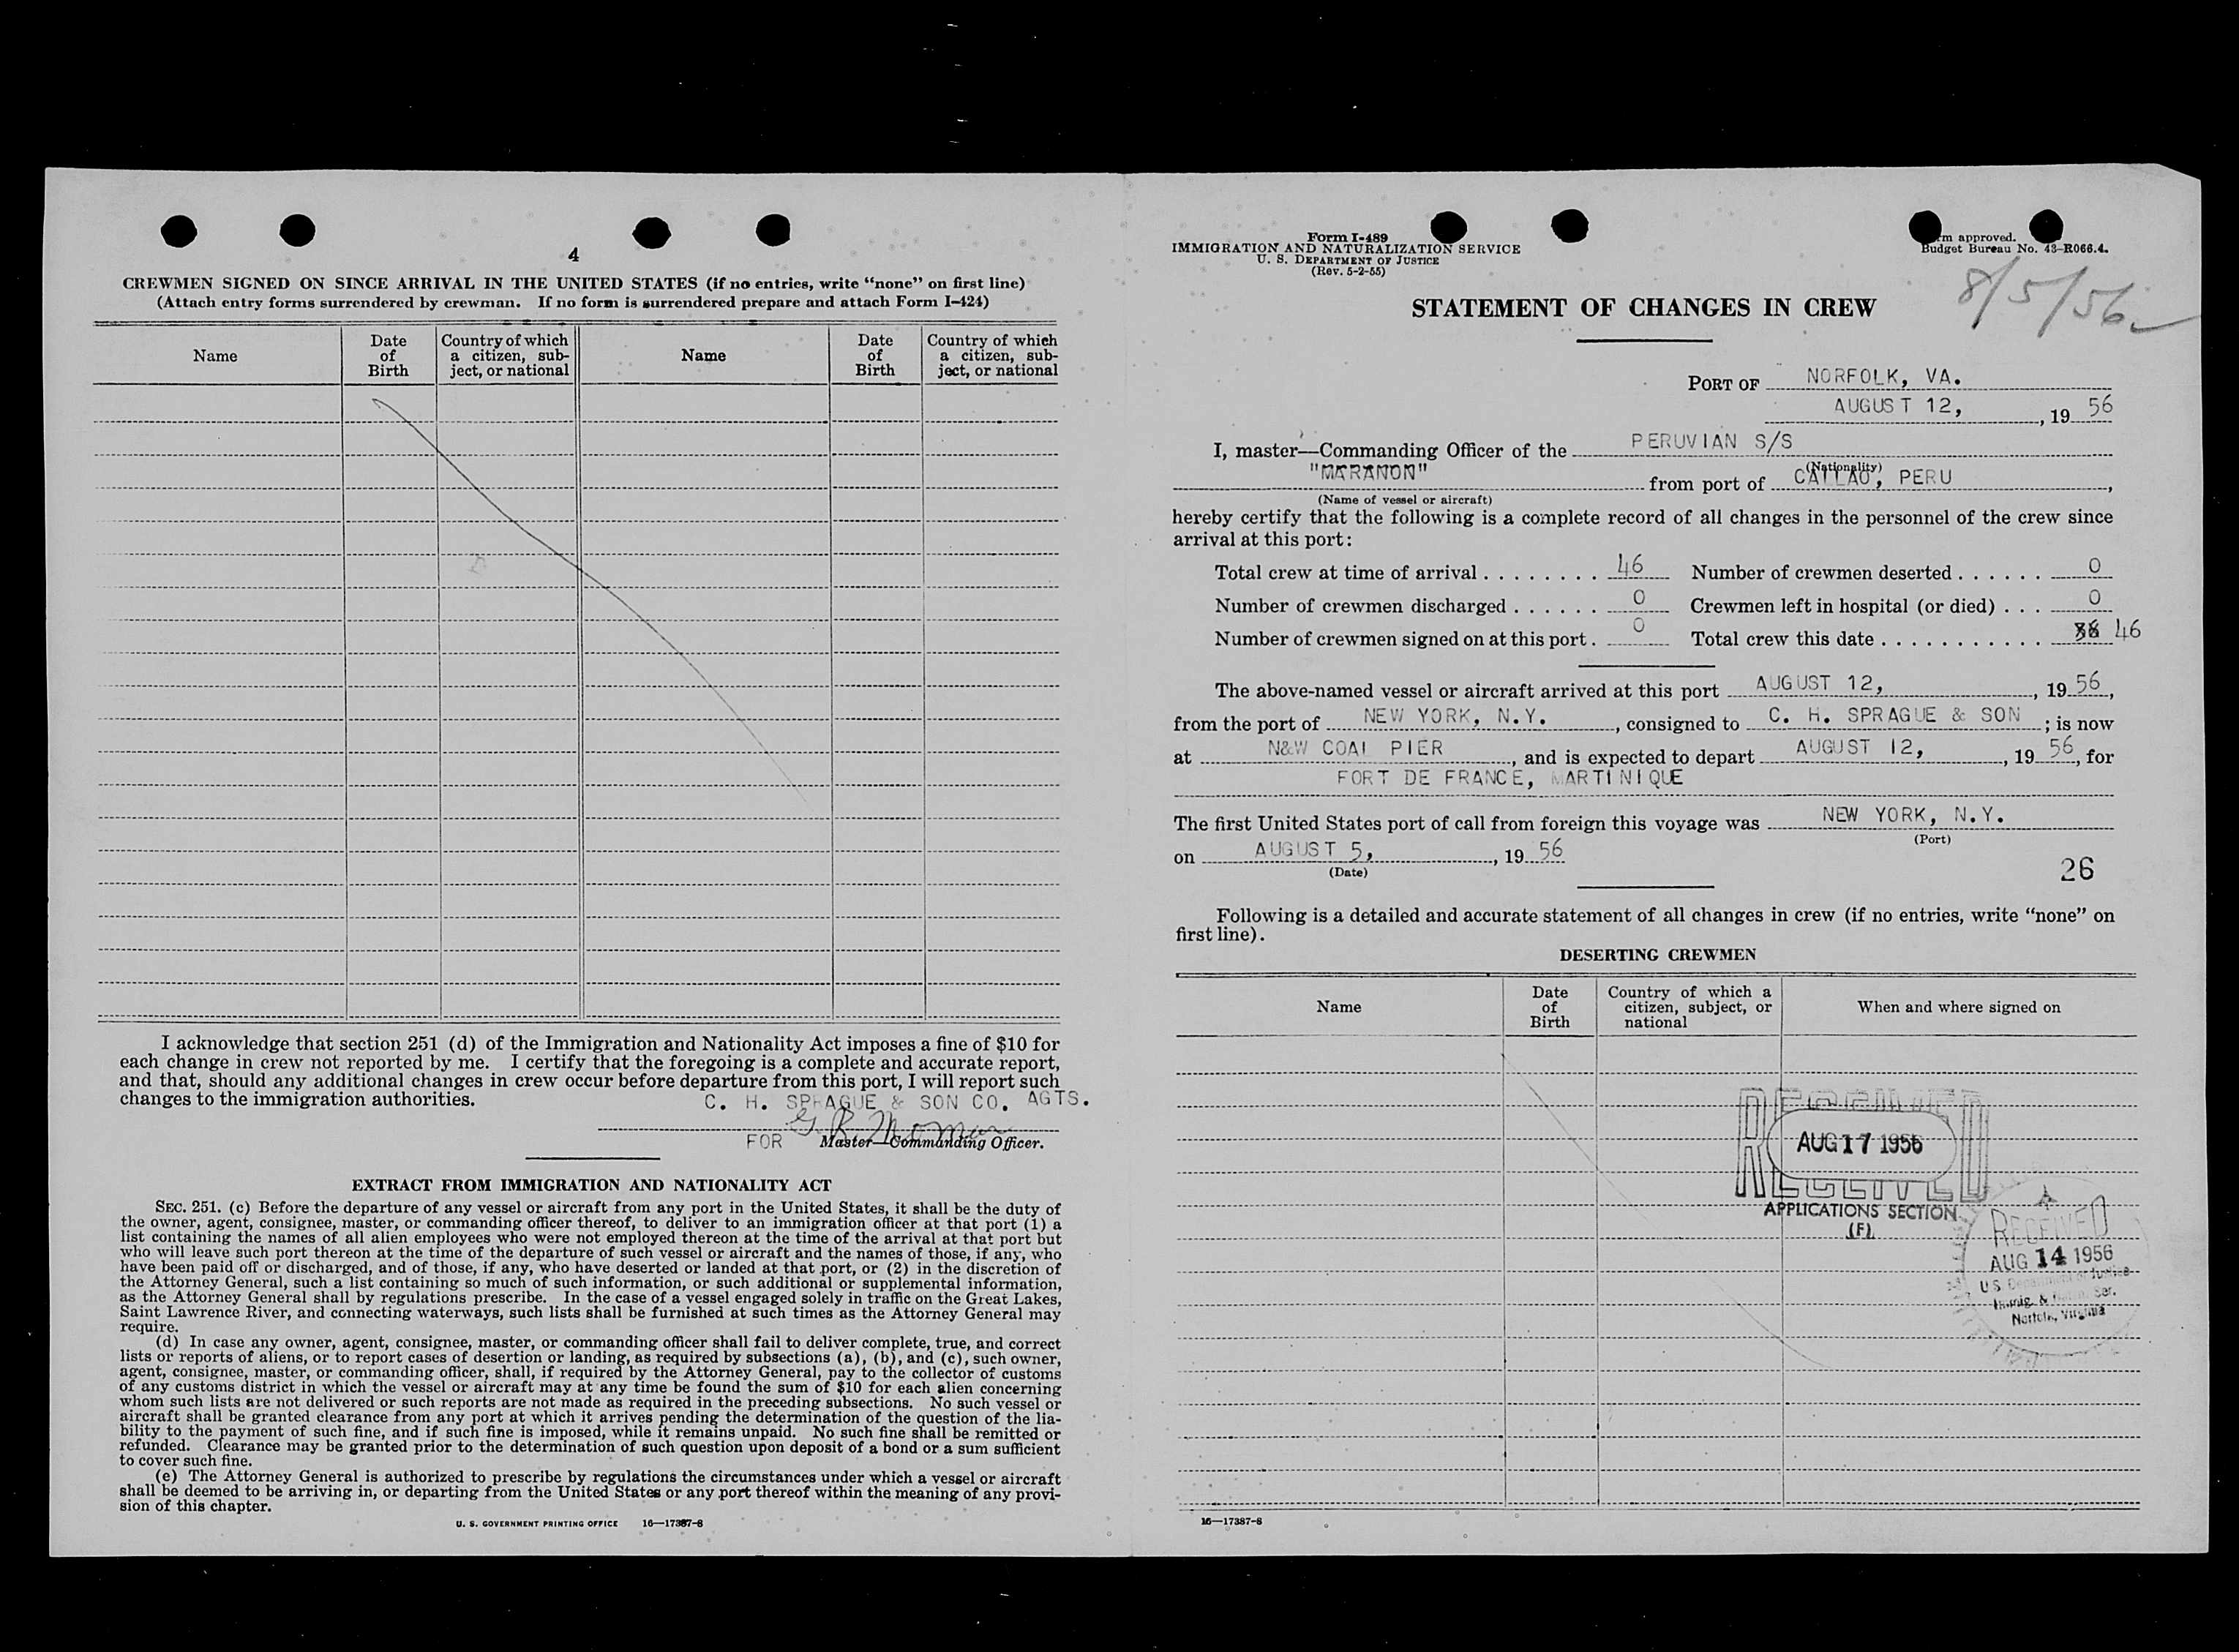 4
CREWMEN SIGNED ON SINCE ARRIVAL IN THE UNITED STATES (if no entries, write “none” on first line)
(Attach entry forms surrendered by crewman. If no form is surrendered prepare and attach Form I-424)
Name
Date of Birth
Country of which a citizen, sub-
ject, or national
Name
Date of Birth
Country of which a citizen, sub-
ject, or national
I acknowledge that section 251 (d) of the Immigration and Nationality Act imposes a fine of $10 for
each change in crew not reported by me. I certify that the foregoing is a complete and accurate report,
and that, should any additional changes in crew occur before departure from this port, I will report such
changes to the immigration authorities.
C. H. SPRAGUE & SON CO. AGTS.
FOR Master—Commanding Officer.
EXTRACT FROM IMMIGRATION AND NATIONALITY ACT
SEC. 251. (c) Before the departure of any vessel or aircraft from any port in the United States, it shall be the duty of
the owner, agent, consignee, master, or commanding officer thereof, to deliver to an immigration officer at that port (1) a
list containing the names of all alien employees who were not employed thereon at the time of the arrival at that port but
who will leave such port thereon at the time of the departure of such vessel or aircraft and the names of those, if any, who
have been paid off or discharged, and of those, if any, who have deserted or landed at that port, or (2) in the discretion of
the Attorney General, such a list containing so much of such information, or such additional or supplemental information,
as the Attorney General shall by regulations prescribe. In the case of a vessel engaged solely in traffic on the Great Lakes,
Saint Lawrence River, and connecting waterways, such lists shall be furnished at such times as the Attorney General may
require.
(d) In case any owner, agent, consignee, master, or commanding officer shall fail to deliver complete, true, and correct
lists or reports of aliens, or to report cases of desertion or landing, as required by subsections (a), (b), and (c), such owner,
agent, consignee, master, or commanding officer, shall, if required by the Attorney General, pay to the collector of customs
of any customs district in which the vessel or aircraft may at any time be found the sum of $10 for each alien concerning
whom such lists are not delivered or such reports are not made as required in the preceding subsections. No such vessel or
aircraft shall be granted clearance from any port at which it arrives pending the determination of the question of the lia-
bility to the payment of such fine, and if such fine is imposed, while it remains unpaid. No such fine shall be remitted or
refunded. Clearance may be granted prior to the determination of such question upon deposit of a bond or a sum sufficient
to cover such fine.
(e) The Attorney General is authorized to prescribe by regulations the circumstances under which a vessel or aircraft
shall be deemed to be arriving in, or departing from the United States or any port thereof within the meaning of any provi-
sion of this chapter.
U. S. GOVERNMENT PRINTING OFFICE 16—17387-8
Form I-489
IMMIGRATION AND NATURALIZATION SERVICE
U. S. DEPARTMENT OF JUSTICE
(Rev. 5-2-55)
approved.
Budget Bureau No. 43-R066.4.
8/5/56
STATEMENT OF CHANGES IN CREW
PORT OF NORFOLK, VA.
AUGUST 12, , 19 56
I, master—Commanding Officer of the PERUVIAN S/S
(Nationality)
"MARANON" from port of CALLAO, PERU ,
(Name of vessel or aircraft)
hereby certify that the following is a complete record of all changes in the personnel of the crew since
arrival at this port:
Total crew at time of arrival . . . . . . . . 46 Number of crewmen deserted . . . . . . 0
Number of crewmen discharged . . . . . . 0 Crewmen left in hospital (or died) . . . 0
Number of crewmen signed on at this port . 0 Total crew this date . . . . . . . . . . . 46
The above-named vessel or aircraft arrived at this port AUGUST 12, , 19 56,
from the port of NEW YORK, N.Y. , consigned to C. H. SPRAGUE & SON ; is now
at N&W COAL PIER , and is expected to depart AUGUST 12, , 19 56, for
FORT DE FRANCE, MARTINIQUE
The first United States port of call from foreign this voyage was NEW YORK, N.Y.
(Port)
on AUGUST 5, , 19 56
(Date)
26
Following is a detailed and accurate statement of all changes in crew (if no entries, write “none” on
first line).
DESERTING CREWMEN
Name
Date of Birth
Country of which a citizen, subject, or national
When and where signed on
RECEIVED
AUG 17 1956
RECEIVED
APPLICATIONS SECTION
(F)
RECEIVED
AUG 14 1956
U.S. Department of Justice
Immig. & Ser.
Norfolk, Virginia
16—17387-8